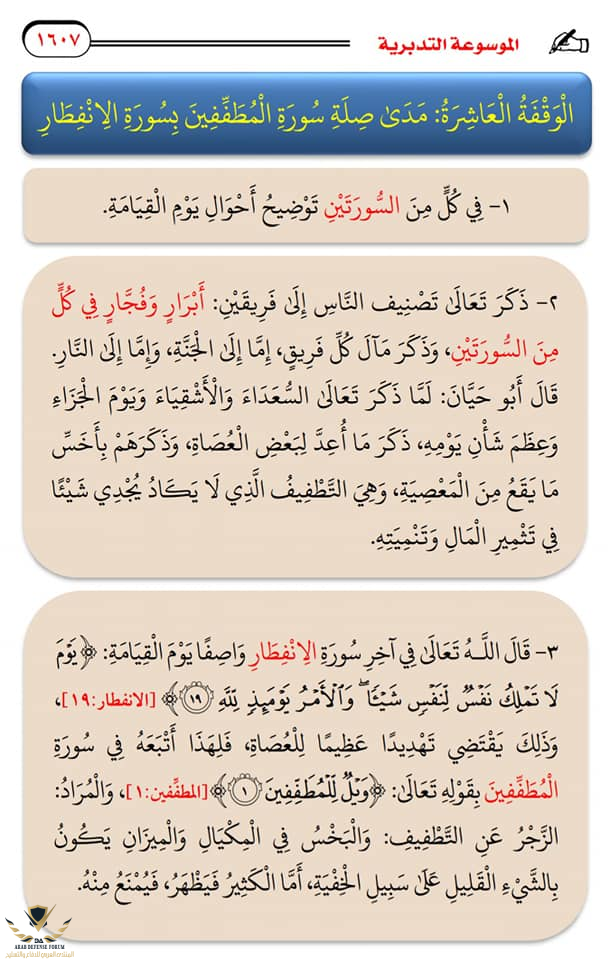 ١٦٠٧
الموسوعة التدبرية
الْوَقْفَةُ الْعَاشِرَةُ: مَدَىٰ صِلَةِ سُورَةِ الْمُطَفِّفِينَ بِسُورَةِ الِانْفِطَارِ
١- فِي كُلٍّ مِنَ السُّورَتَيْنِ تَوْضِيحُ أَحْوَالِ يَوْمِ الْقِيَامَةِ.
٢- ذَكَرَ تَعَالَىٰ تَصْنِيفَ النَّاسِ إِلَىٰ فَرِيقَيْنِ: أَبْرَارٍ وَفُجَّارٍ فِي كُلٍّ
مِنَ السُّورَتَيْنِ، وَذَكَرَ مَآلَ كُلِّ فَرِيقٍ، إِمَّا إِلَى الْجَنَّةِ، وَإِمَّا إِلَى النَّارِ.
قَالَ أَبُو حَيَّانَ: لَمَّا ذَكَرَ تَعَالَى السُّعَدَاءَ وَالْأَشْقِيَاءَ وَيَوْمَ الْجَزَاءِ
وَعِظَمَ شَأْنِ يَوْمِهِ، ذَكَرَ مَا أُعِدَّ لِبَعْضِ الْعُصَاةِ، وَذَكَرَهُمْ بِأَخَسِّ
مَا يَقَعُ مِنَ الْمَعْصِيَةِ، وَهِيَ التَّطْفِيفُ الَّذِي لَا يَكَادُ يُجْدِي شَيْئًا
فِي تَثْمِيرِ الْمَالِ وَتَنْمِيَتِهِ.
٣- قَالَ اللَّهُ تَعَالَىٰ فِي آخِرِ سُورَةِ الِانْفِطَارِ وَاصِفًا يَوْمَ الْقِيَامَةِ: ﴿يَوْمَ
لَا تَمْلِكُ نَفْسٌ لِّنَفْسٍ شَيْـًٔا ۖ وَالْأَمْرُ يَوْمَئِذٍ لِّلَّهِ ١٩﴾ [الانفطار:١٩]،
وَذَلِكَ يَقْتَضِي تَهْدِيدًا عَظِيمًا لِلْعُصَاةِ، فَلِهَذَا أَتْبَعَهُ فِي سُورَةِ
الْمُطَفِّفِينَ بِقَوْلِهِ تَعَالَىٰ: ﴿وَيْلٌ لِّلْمُطَفِّفِينَ ١﴾ [المطفِّفين:١]، وَالْمُرَادُ:
الزَّجْرُ عَنِ التَّطْفِيفِ: وَالْبَخْسُ فِي الْمِكْيَالِ وَالْمِيزَانِ يَكُونُ
بِالشَّيْءِ الْقَلِيلِ عَلَىٰ سَبِيلِ الْخِفْيَةِ، أَمَّا الْكَثِيرُ فَيَظْهَرُ، فَيُمْنَعُ مِنْهُ.
DA
ARAB DEFENSE FORUM
المنتدى العربي للدفاع والتسليح